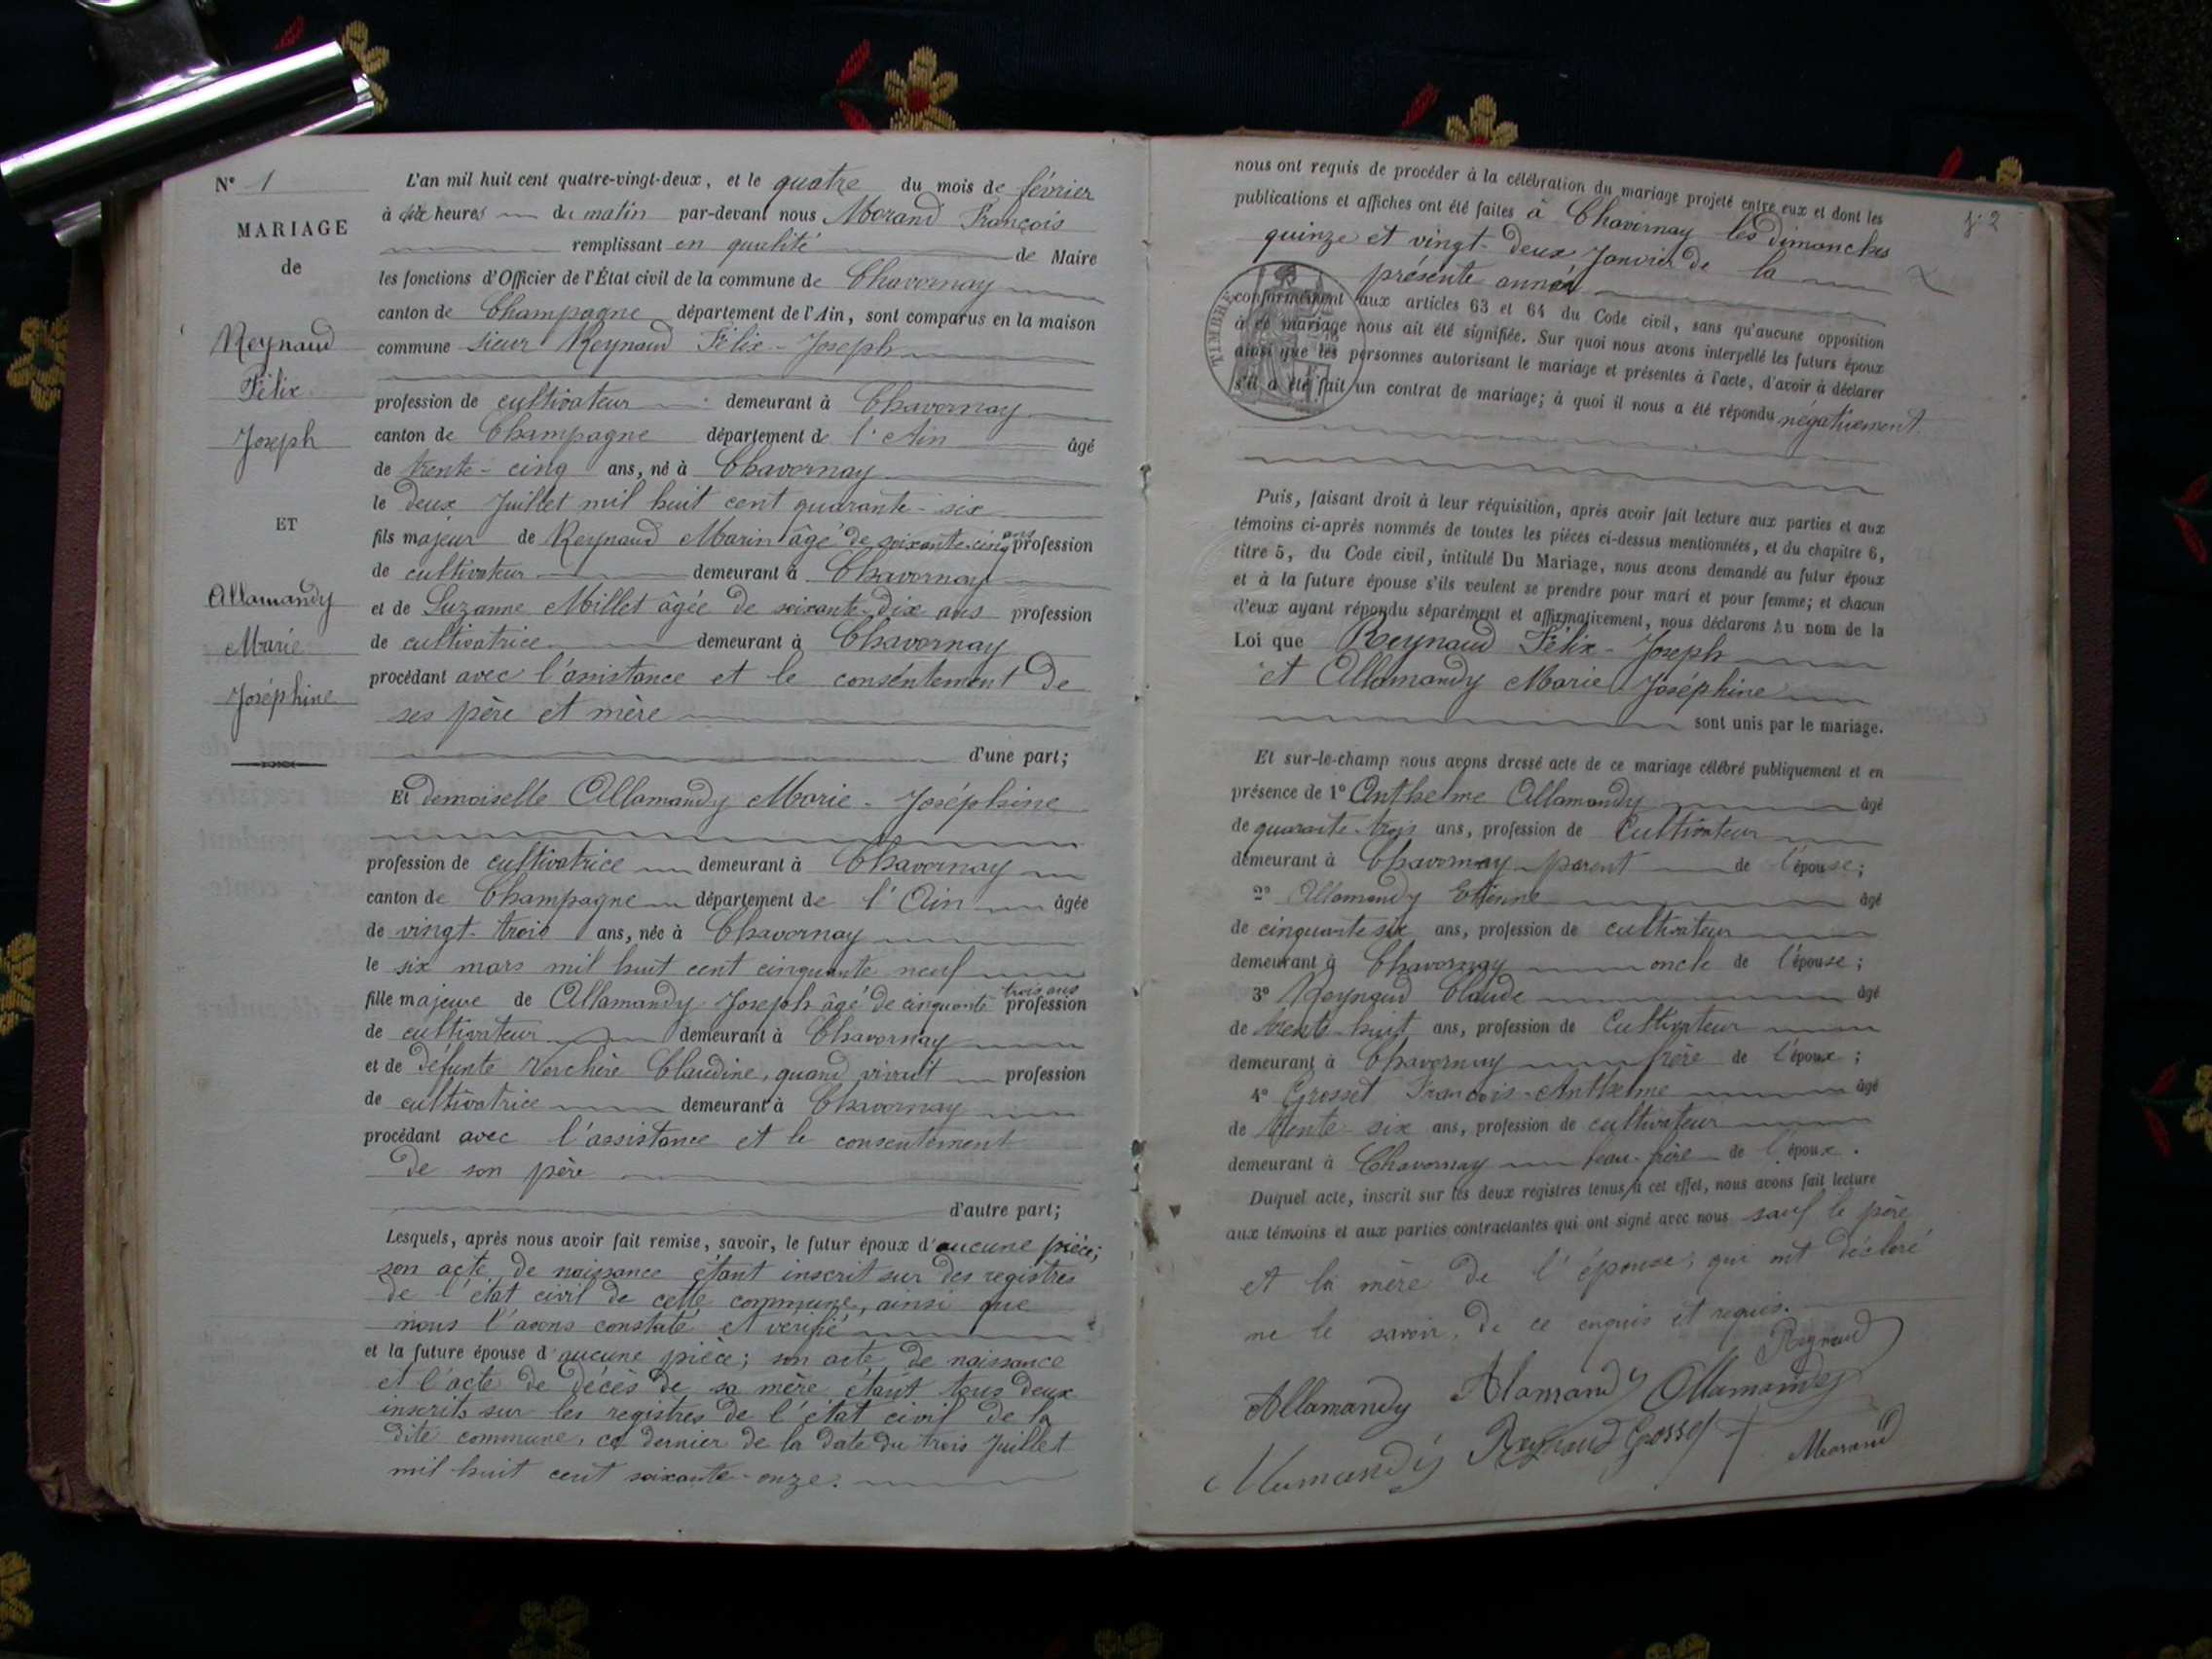 N° 1
MARIAGE
de
Reynaud
Félix
Joseph
ET
Allamandy
Marie
Joséphine
L'an mil huit cent quatre-vingt-deux, et le quatre du mois de février
à dix heures du matin par-devant nous Morand François
remplissant en qualité de Maire
les fonctions d'Officier de l'État civil de la commune de Chavornay
canton de Champagne département de l'Ain, sont comparus en la maison
commune sieur Reynaud Félix-Joseph
profession de cultivateur demeurant à Chavornay
canton de Champagne département de l'Ain âgé
de trente-cinq ans, né à Chavornay
le deux Juillet mil huit cent quarante-six
fils majeur de Reynaud Marin âgé de soixante-cinq ans profession
de cultivateur demeurant à Chavornay
et de Suzanne Millet âgée de soixante-dix ans profession
de cultivatrice demeurant à Chavornay
procédant avec l'assistance et le consentement de
ses père et mère
d'une part;
Et demoiselle Allamandy Marie-Joséphine
profession de cultivatrice demeurant à Chavornay
canton de Champagne département de l'Ain âgée
de vingt-trois ans, née à Chavornay
le six mars mil huit cent cinquante neuf
fille majeure de Allamandy Joseph âgé de cinquante trois ans profession
de cultivateur demeurant à Chavornay
et de défunte Verchère Claudine, quand vivait profession
de cultivatrice demeurant à Chavornay
procédant avec l'assistance et le consentement
de son père
d'autre part;
Lesquels, après nous avoir fait remise, savoir, le futur époux d'aucune pièce;
son acte de naissance étant inscrit sur des registres
de l'état civil de cette commune, ainsi que
nous l'avons constaté et vérifié
et la future épouse d'aucune pièce; son acte de naissance
et l'acte de décès de sa mère étant tous deux
inscrits sur les registres de l'état civil de la
dite commune, ce dernier de la date du trois Juillet
mil huit cent soixante-onze.
f. 2
nous ont requis de procéder à la célébration du mariage projeté entre eux et dont les
publications et affiches ont été faites à Chavornay les dimanches
quinze et vingt-deux Janvier de la
présente année
conformément aux articles 63 et 64 du Code civil, sans qu'aucune opposition
à ce mariage nous ait été signifiée. Sur quoi nous avons interpellé les futurs époux
ainsi que les personnes autorisant le mariage et présentes à l'acte, d'avoir à déclarer
s'il a été fait un contrat de mariage; à quoi il nous a été répondu négativement.
TIMBRE
Puis, faisant droit à leur réquisition, après avoir fait lecture aux parties et aux
témoins ci-après nommés de toutes les pièces ci-dessus mentionnées, et du chapitre 6,
titre 5, du Code civil, intitulé Du Mariage, nous avons demandé au futur époux
et à la future épouse s'ils veulent se prendre pour mari et pour femme; et chacun
d'eux ayant répondu séparément et affirmativement, nous déclarons Au nom de la
Loi que Reynaud Félix-Joseph
et Allamandy Marie Joséphine
sont unis par le mariage.
Et sur-le-champ nous avons dressé acte de ce mariage célébré publiquement et en
présence de 1° Anthelme Allamandy âgé
de quarante-trois ans, profession de Cultivateur
demeurant à Chavornay parent de l'épouse;
2° Allamandy Etienne âgé
de cinquante six ans, profession de cultivateur
demeurant à Chavornay oncle de l'épouse;
3° Reynaud Claude âgé
de trente-huit ans, profession de Cultivateur
demeurant à Chavornay frère de l'époux;
4° Grosset François-Anthelme âgé
de trente-six ans, profession de cultivateur
demeurant à Chavornay beau-frère de l'époux.
Duquel acte, inscrit sur les deux registres tenus à cet effet, nous avons fait lecture
aux témoins et aux parties contractantes qui ont signé avec nous sauf le père
et la mère de l'épouse, qui ont déclaré
ne le savoir, de ce enquis et requis.
Reynaud
Allamandy Alamandy Allamandy
Allamandy Reynaud Grosset Morand